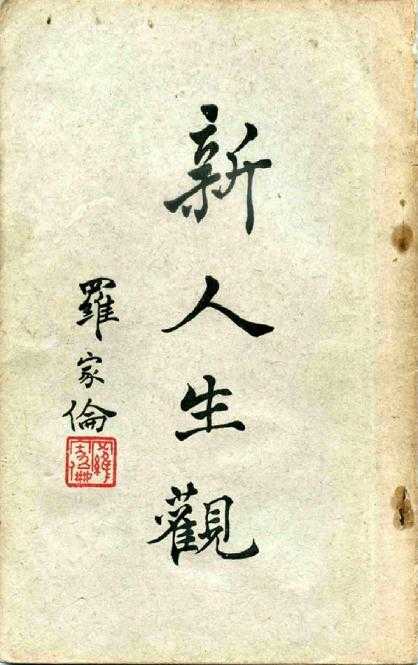 新人生觀
羅家倫